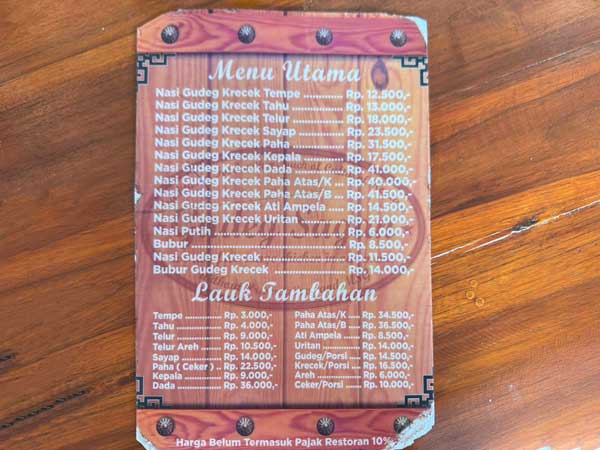 Menu Utama
Nasi Gudeg Krecek Tempe .............. Rp. 12.500,-
Nasi Gudeg Krecek Tahu ................ Rp. 13.000,-
Nasi Gudeg Krecek Telur ................ Rp. 18.000,-
Nasi Gudeg Krecek Sayap .............. Rp. 23.500,-
Nasi Gudeg Krecek Paha ................ Rp. 31.500,-
Nasi Gudeg Krecek Kepala ............. Rp. 17.500,-
Nasi Gudeg Krecek Dada ............... Rp. 41.000,-
Nasi Gudeg Krecek Paha Atas/K ... Rp. 40.000,-
Nasi Gudeg Krecek Paha Atas/B ... Rp. 41.500,-
Nasi Gudeg Krecek Ati Ampela ...... Rp. 14.500,-
Nasi Gudeg Krecek Uritan .............. Rp. 21.000,-
Nasi Putih ......................... Rp. 6.000,-
Bubur ......................... Rp. 8.500,-
Nasi Gudeg Krecek ......................... Rp. 11.500,-
Bubur Gudeg Krecek ..................... Rp. 14.000,-
Lauk Tambahan
Tempe ............... Rp. 3.000,-
Tahu .................. Rp. 4.000,-
Telur .................. Rp. 9.000,-
Telur Areh ......... Rp. 10.500,-
Sayap ................ Rp. 14.000,-
Paha ( Ceker ) .. Rp. 22.500,-
Kepala .............. Rp. 9.000,-
Dada ................. Rp. 36.000,-
Paha Atas/K ..... Rp. 34.500,-
Paha Atas/B ..... Rp. 36.500,-
Ati Ampela ....... Rp. 8.500,-
Uritan ............... Rp. 14.000,-
Gudeg/Porsi ..... Rp. 14.500,-
Krecek/Porsi .... Rp. 16.500,-
Areh .................. Rp. 6.000,-
Ceker/Porsi ...... Rp. 10.000,-
Harga Belum Termasuk Pajak Restoran 10%